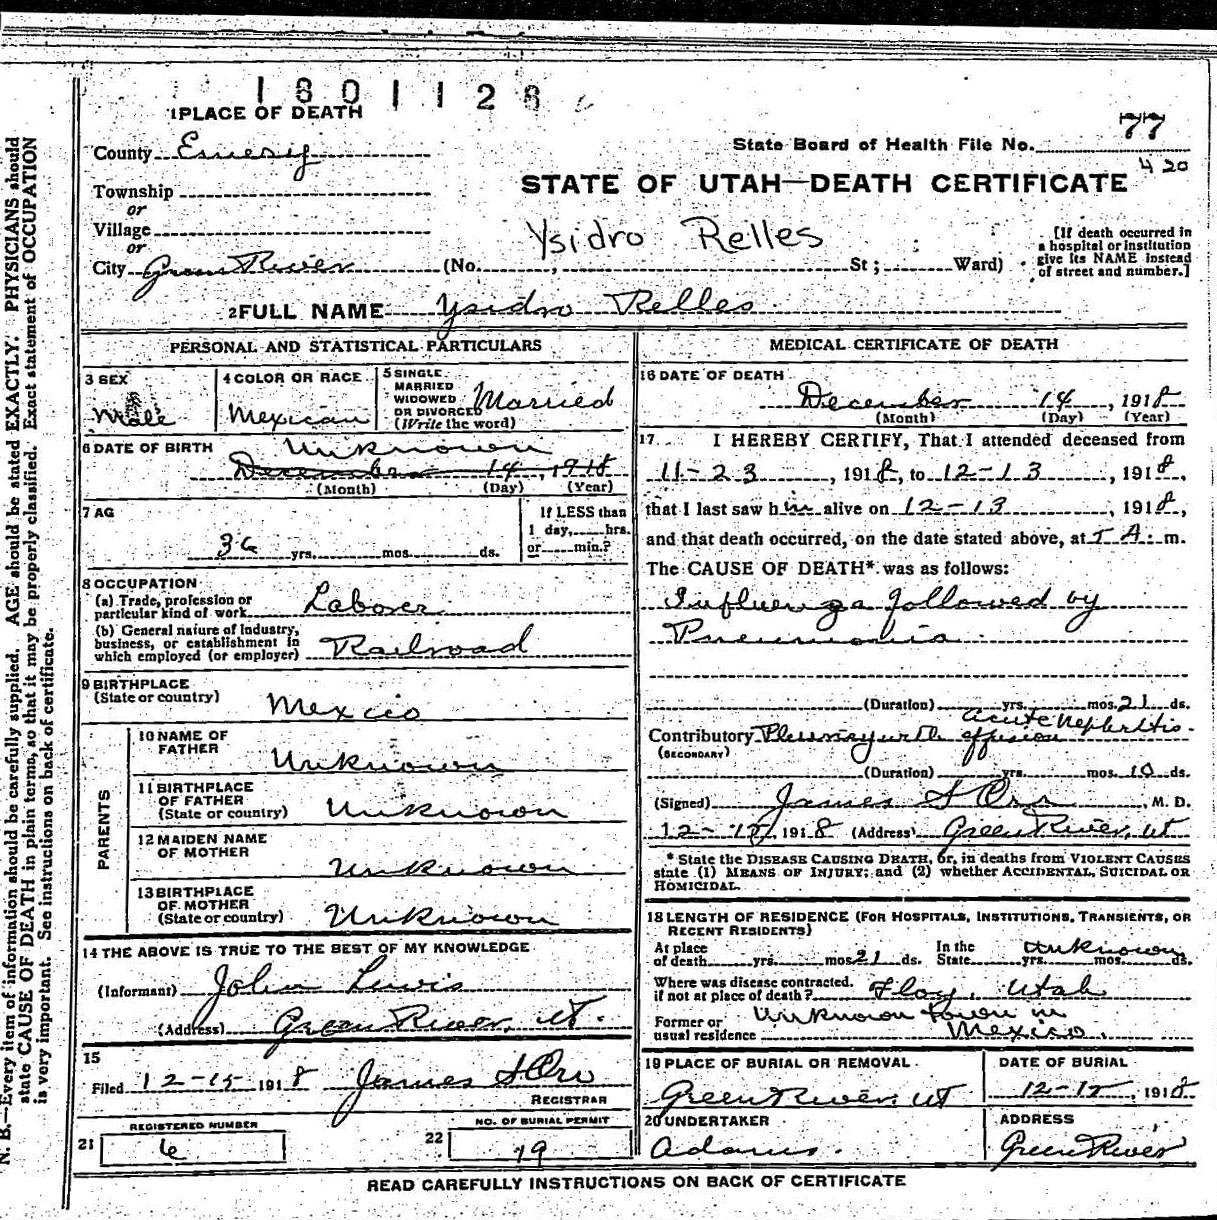 1801128
1 PLACE OF DEATH
77
State Board of Health File No.
420
County Emery
STATE OF UTAH—DEATH CERTIFICATE
Township
or
Village
or
Ysidro Relles
[If death occurred in
a hospital or institution
give its NAME instead
of street and number.]
City Green River (No. , St ; Ward)
2 FULL NAME Ysidro Relles
PERSONAL AND STATISTICAL PARTICULARS
3 SEX
Male
4 COLOR OR RACE
Mexican
5 SINGLE
MARRIED
WIDOWED
OR DIVORCED
(Write the word)
Married
6 DATE OF BIRTH Unknown
December 14, 1918
(Month) (Day) (Year)
7 AG
yrs. mos. ds.
If LESS than
1 day, hrs.
or min.?
8 OCCUPATION
(a) Trade, profession or
particular kind of work Laborer
(b) General nature of industry,
business, or establishment in
which employed (or employer) Railroad
9 BIRTHPLACE
(State or country) Mexico
PARENTS
10 NAME OF
FATHER Unknown
11 BIRTHPLACE
OF FATHER
(State or country) Unknown
12 MAIDEN NAME
OF MOTHER Unknown
13 BIRTHPLACE
OF MOTHER
(State or country) Unknown
14 THE ABOVE IS TRUE TO THE BEST OF MY KNOWLEDGE
(Informant) John Lewis
(Address) Green River, Ut.
15
Filed 12-15 1918 James S Orr
REGISTRAR
21 REGISTERED NUMBER
6
22 NO. OF BURIAL PERMIT
19
MEDICAL CERTIFICATE OF DEATH
16 DATE OF DEATH
December 14, 1918
(Month) (Day) (Year)
17 I HEREBY CERTIFY, That I attended deceased from
11-23, 1918, to 12-13, 1918,
that I last saw him alive on 12-13, 1918,
and that death occurred, on the date stated above, at A. m.
The CAUSE OF DEATH* was as follows:
Influenza followed by
Pneumonia.
(Duration) yrs. mos. 21 ds.
acute Nephritis.
Contributory Pleurisy with effusion
(SECONDARY)
(Duration) yrs. mos. 10 ds.
(Signed) James S Orr, M. D.
12- 1918 (Address) Green River, Ut
* State the DISEASE CAUSING DEATH, or, in deaths from VIOLENT CAUSES
state (1) MEANS OF INJURY; and (2) whether ACCIDENTAL, SUICIDAL OR
HOMICIDAL.
18 LENGTH OF RESIDENCE (FOR HOSPITALS, INSTITUTIONS, TRANSIENTS, OR
RECENT RESIDENTS)
At place
of death yrs. mos. 21 ds.
In the
State yrs. mos. ds.
Unknown
Where was disease contracted,
if not at place of death? Floy, Utah
Former or
usual residence Unknown town in
Mexico.
19 PLACE OF BURIAL OR REMOVAL
Green River, Ut
DATE OF BURIAL
12-15, 1918
20 UNDERTAKER
Adams.
ADDRESS
Green River
READ CAREFULLY INSTRUCTIONS ON BACK OF CERTIFICATE
N. B.—Every item of information should be carefully supplied. AGE should be stated EXACTLY. PHYSICIANS should
state CAUSE OF DEATH in plain terms, so that it may be properly classified. Exact statement of OCCUPATION
is very important. See instructions on back of certificate.